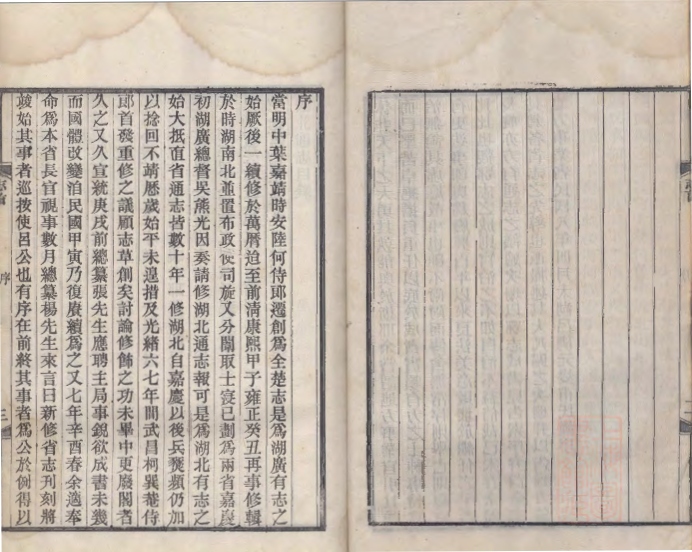 序
當明中葉嘉靖時安陸何侍郎遷創為全楚志是為湖廣有志之
始厥後一續修於萬曆迨至前清康熙甲子雍正癸丑再事修輯
於時湖南北並置布政使司旋又分闈取士寖已劃為兩省嘉慶
初湖廣總督吳熊光因奏請修湖北通志報可是為湖北有志之
始大抵直省通志皆數十年一修湖北自嘉慶以後兵燹頻仍加
以捻回不靖歷歲始平未遑措及光緒六七年間武昌柯巽菴侍
郎首發重修之議顧志草創矣討論修飾之功未畢中更廢閣者
久之又久宣統庚戌前總纂張先生應聘主局事銳欲成書未幾
而國體改變洎民國甲寅乃復賡續為之又七年辛酉春余適奉
命為本省長官視事數月總纂楊先生來言曰新修省志刊刻將
竣始其事者巡按使呂公也有序在前終其事者為公於例得以
序
三